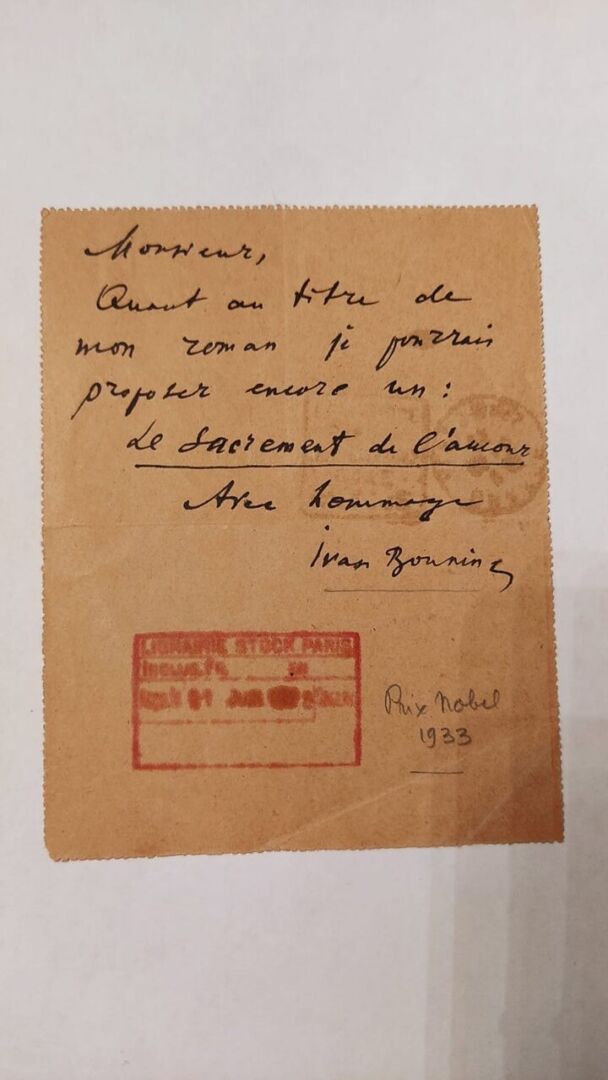 Monsieur,
Quant au titre de
mon roman je pourrais
proposer encore un :
Le Sacrement de l'amour
Avec hommage
Ivan Bounine
LIBRAIRIE STOCK PARIS
Prix Nobel
1933